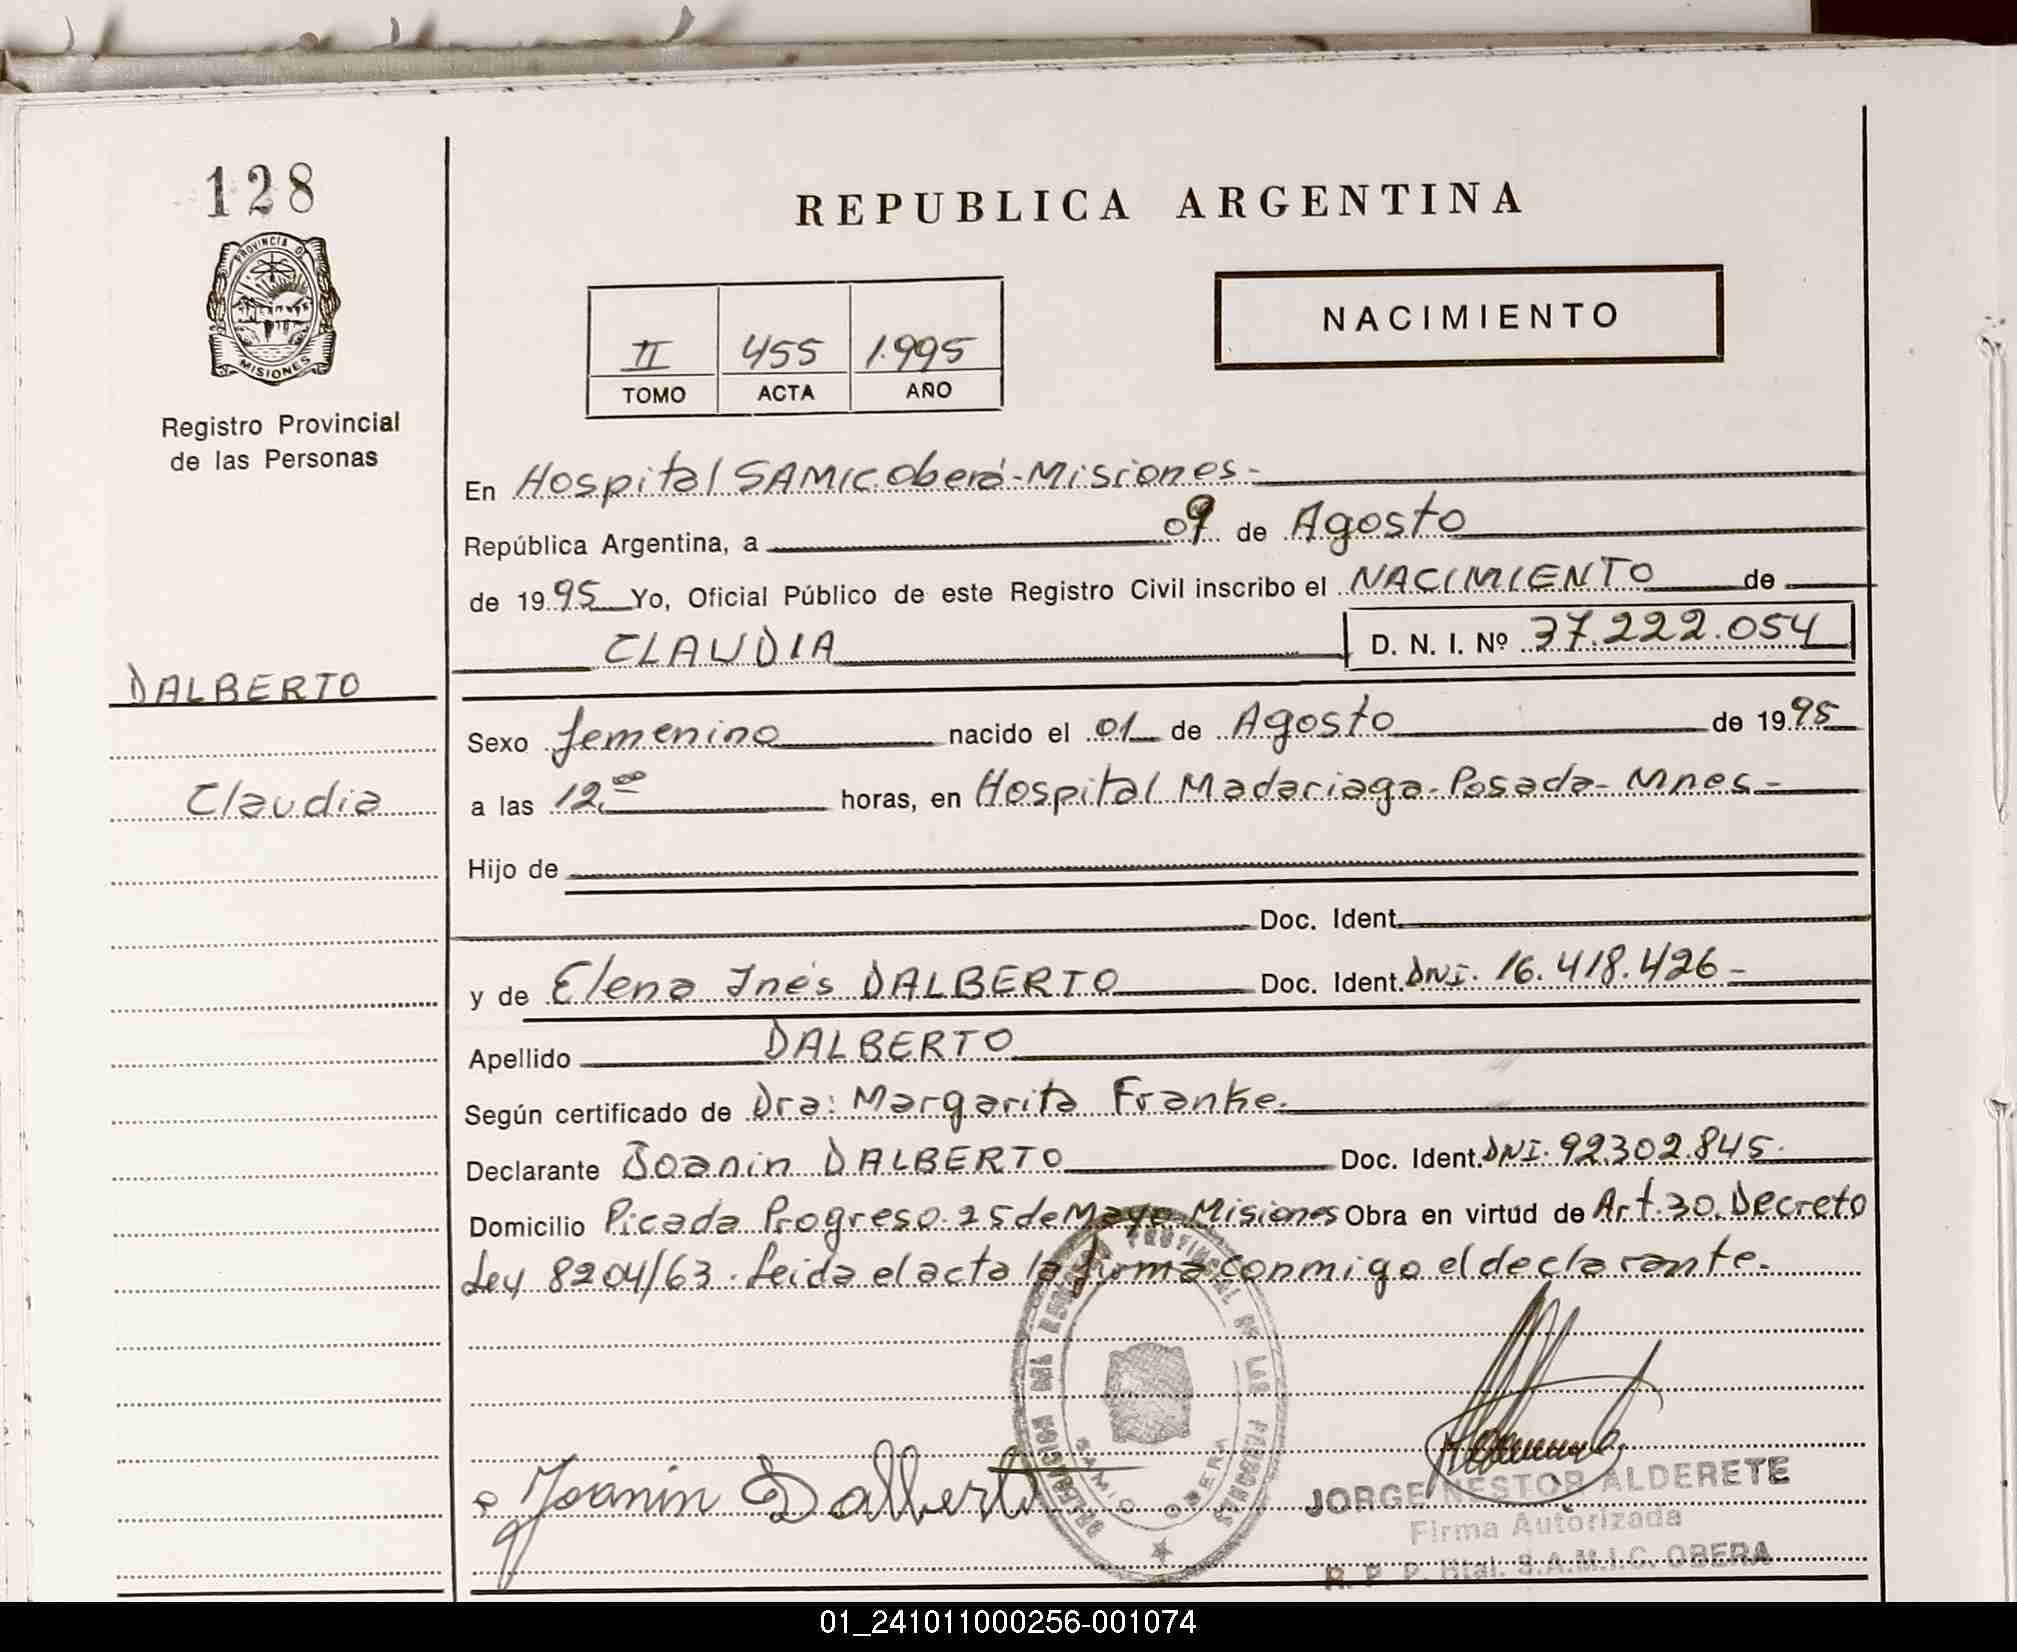 128
PROVINCIA DE
MISIONES
Registro Provincial
de las Personas
REPUBLICA ARGENTINA
II 455 1.995
TOMO ACTA AÑO
NACIMIENTO
En Hospital SAMIC.Oberá-Misiones-
República Argentina, a 09 de Agosto
de 1995 Yo, Oficial Público de este Registro Civil inscribo el NACIMIENTO de
CLAUDIA D. N. I. Nº 37.222.054
DALBERTO
Sexo femenino nacido el 01 de Agosto de 1995
Claudia
a las 12.00 horas, en Hospital Madariaga-Posada-Mnes-
Hijo de
Doc. Ident.
y de Elena Inés DALBERTO Doc. Ident. DNI. 16.418.426-
Apellido DALBERTO
Según certificado de Dra: Margarita Franke.
Declarante Joanin DALBERTO Doc. Ident. DNI. 92.302.845.
Domicilio Picada Progreso.25 de Mayo.Misiones Obra en virtud de Art.30.Decreto
Ley 8204/63. Leida el acta la firma conmigo el declarante.
Joanin Dalberto
JORGE NESTOR ALDERETE
Firma Autorizada
R. P. P. Htal. S.A.M.I.C. OBERA
01_241011000256-001074